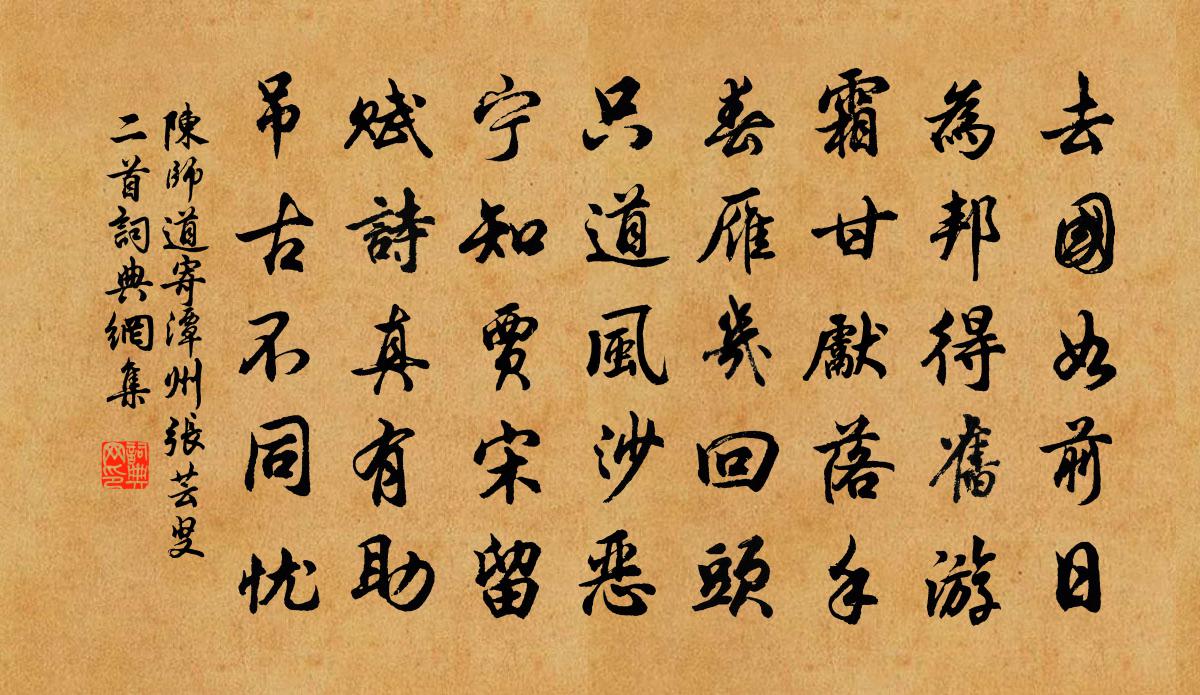 去國如前日
為邦得舊游
霜甘獻落手
春雁幾回頭
只道風沙惡
宁知賈宋留
賦詩真有助
吊古不同忧
陳師道寄潭州張芸叟
二首詞典網集
詞典網印